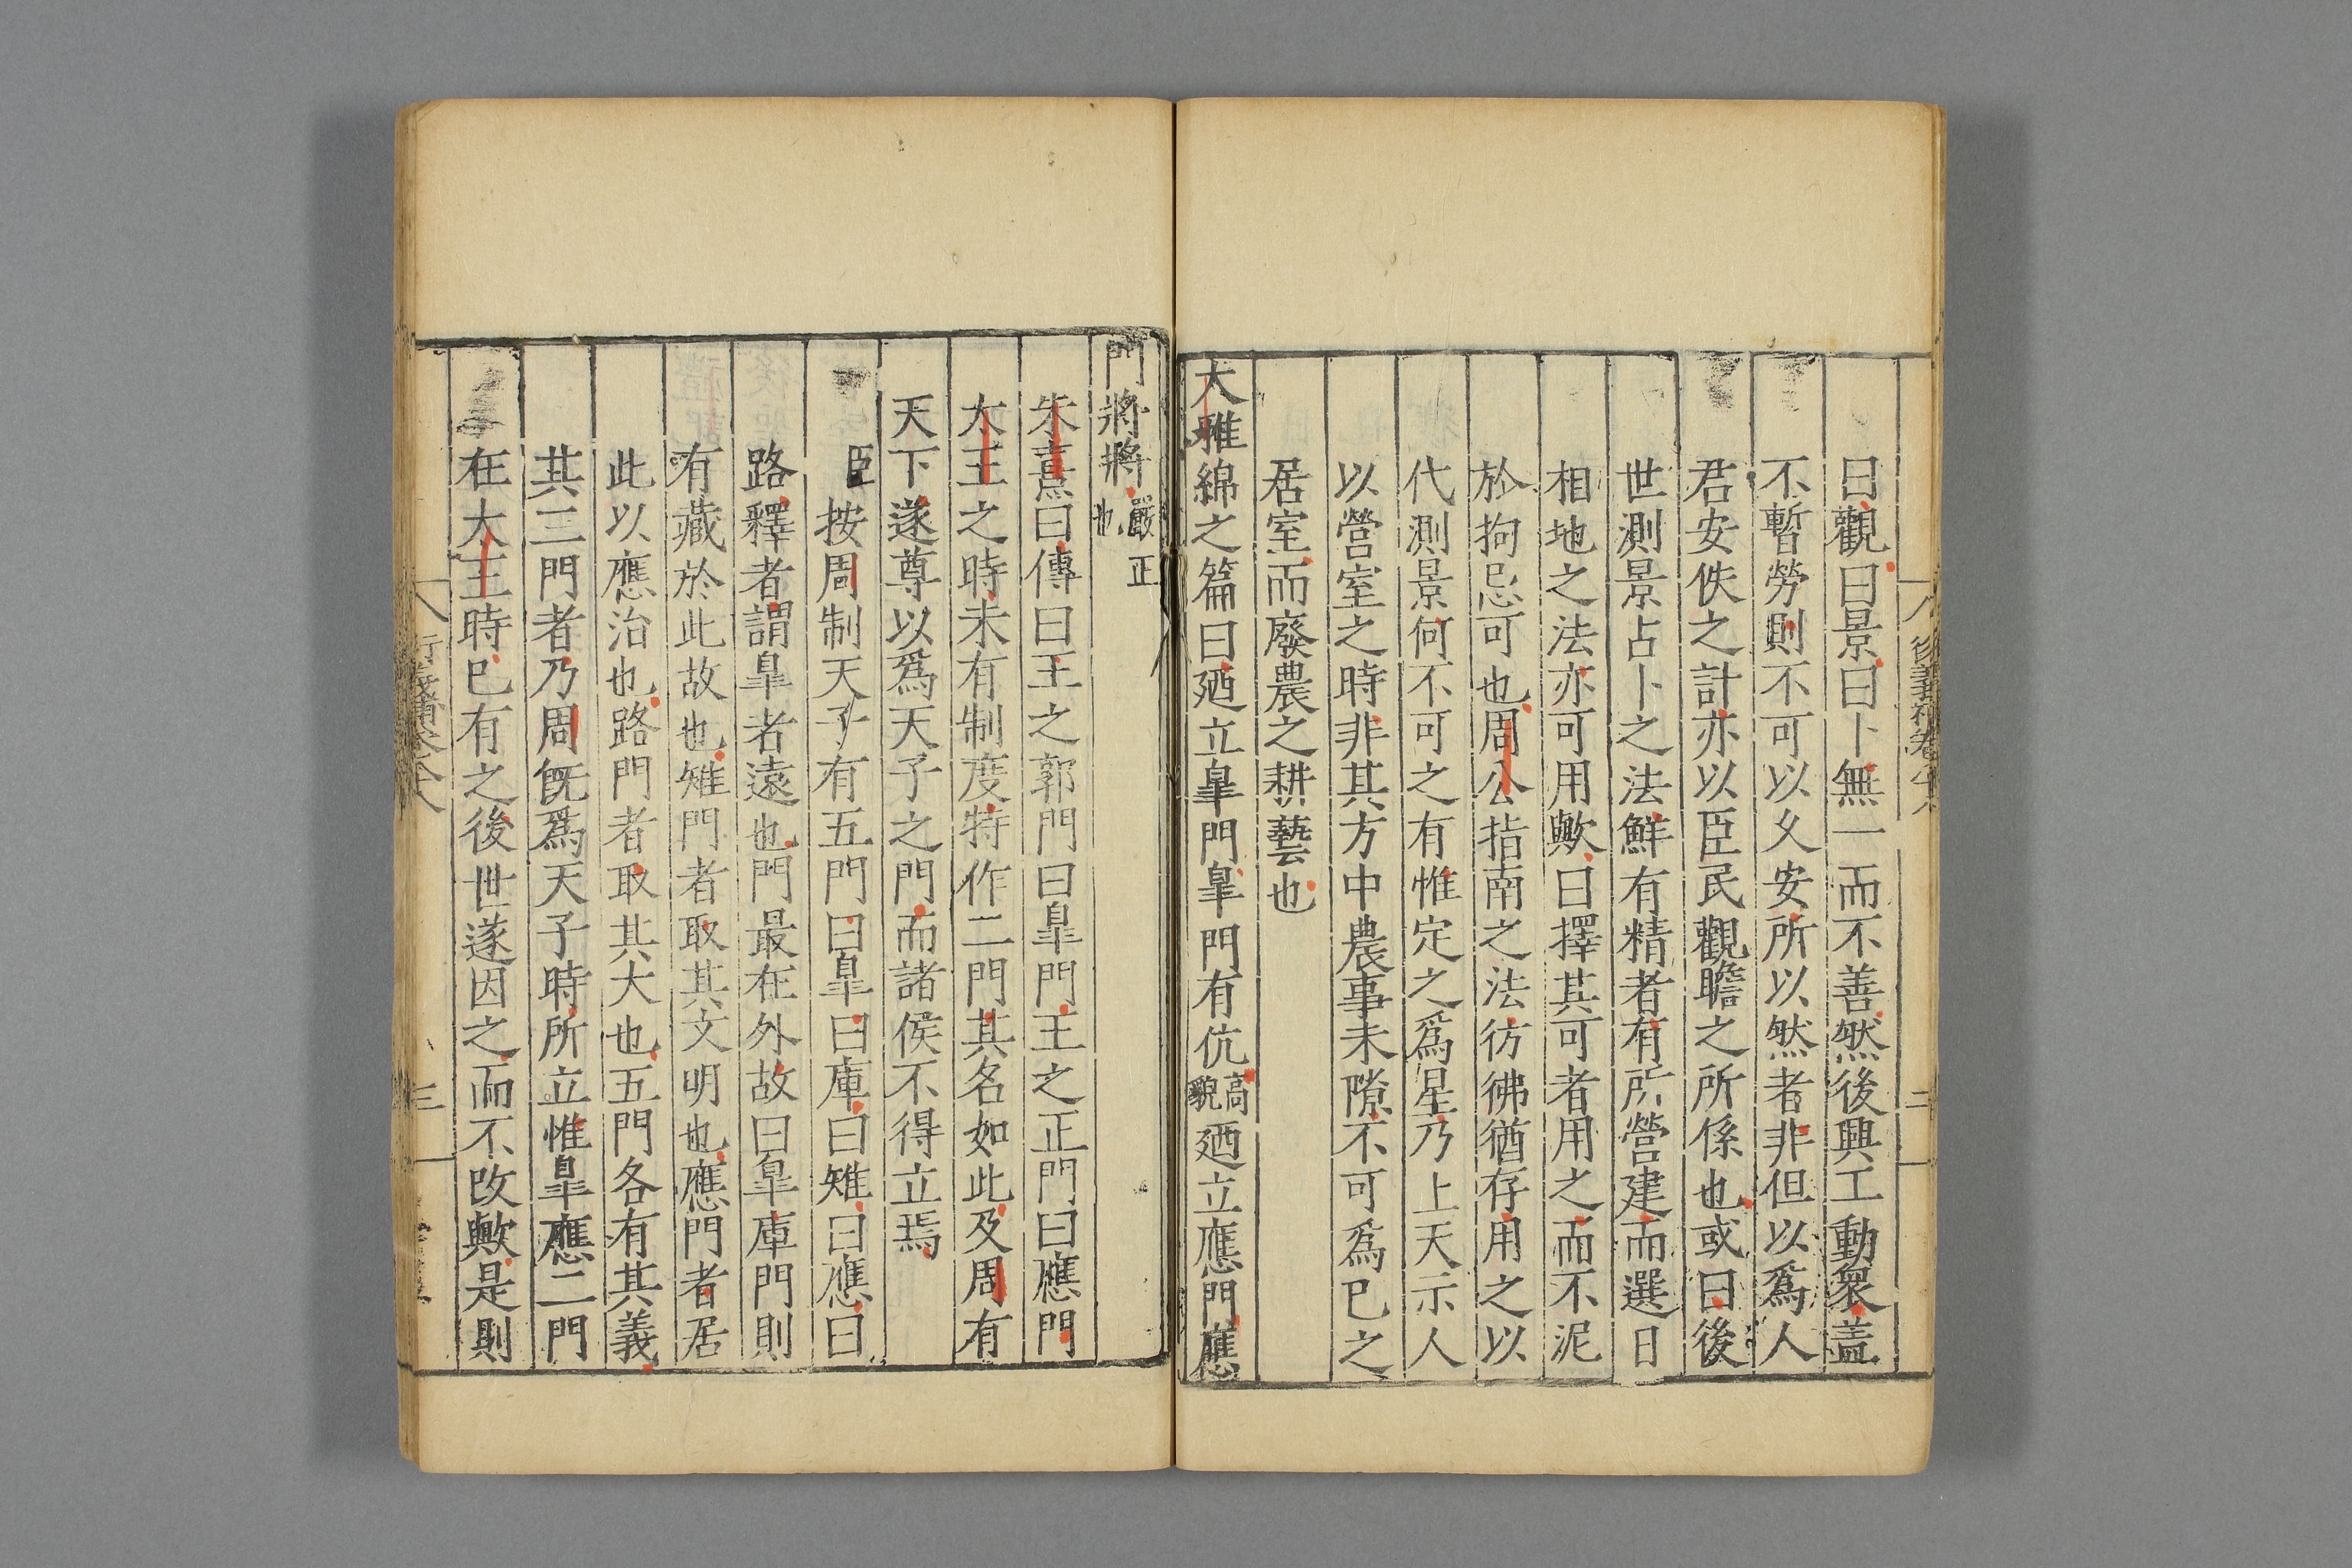 曰觀曰景曰卜無一而不善然後興工動衆盖
不暫勞則不可以乆安所以然者非但以爲人
君安佚之計亦以臣民觀瞻之所係也或曰後
世測景占卜之法鮮有精者有所營建而選日
相地之法亦可用歟曰擇其可者用之而不泥
於拘忌可也周公指南之法彷彿猶存用之以
代測景何不可之有惟定之爲星乃上天示人
以營室之時非其方中農事未隙不可爲已之
居室而廢農之耕藝也
大雅綿之篇曰廼立臯門臯門有伉高貌廼立應門應
門將將嚴正也
朱熹曰傳曰王之郭門曰臯門王之正門曰應門
太王之時未有制度特作二門其名如此及周有
天下遂尊以爲天子之門而諸侯不得立焉
臣按周制天子有五門曰臯曰庫曰雉曰應曰
路釋者謂臯者遠也門最在外故曰臯庫門則
有藏於此故也雉門者取其文明也應門者居
此以應治也路門者取其大也五門各有其義
其三門者乃周旣爲天子時所立惟臯應二門
在太王時已有之後世遂因之而不改歟是則
三